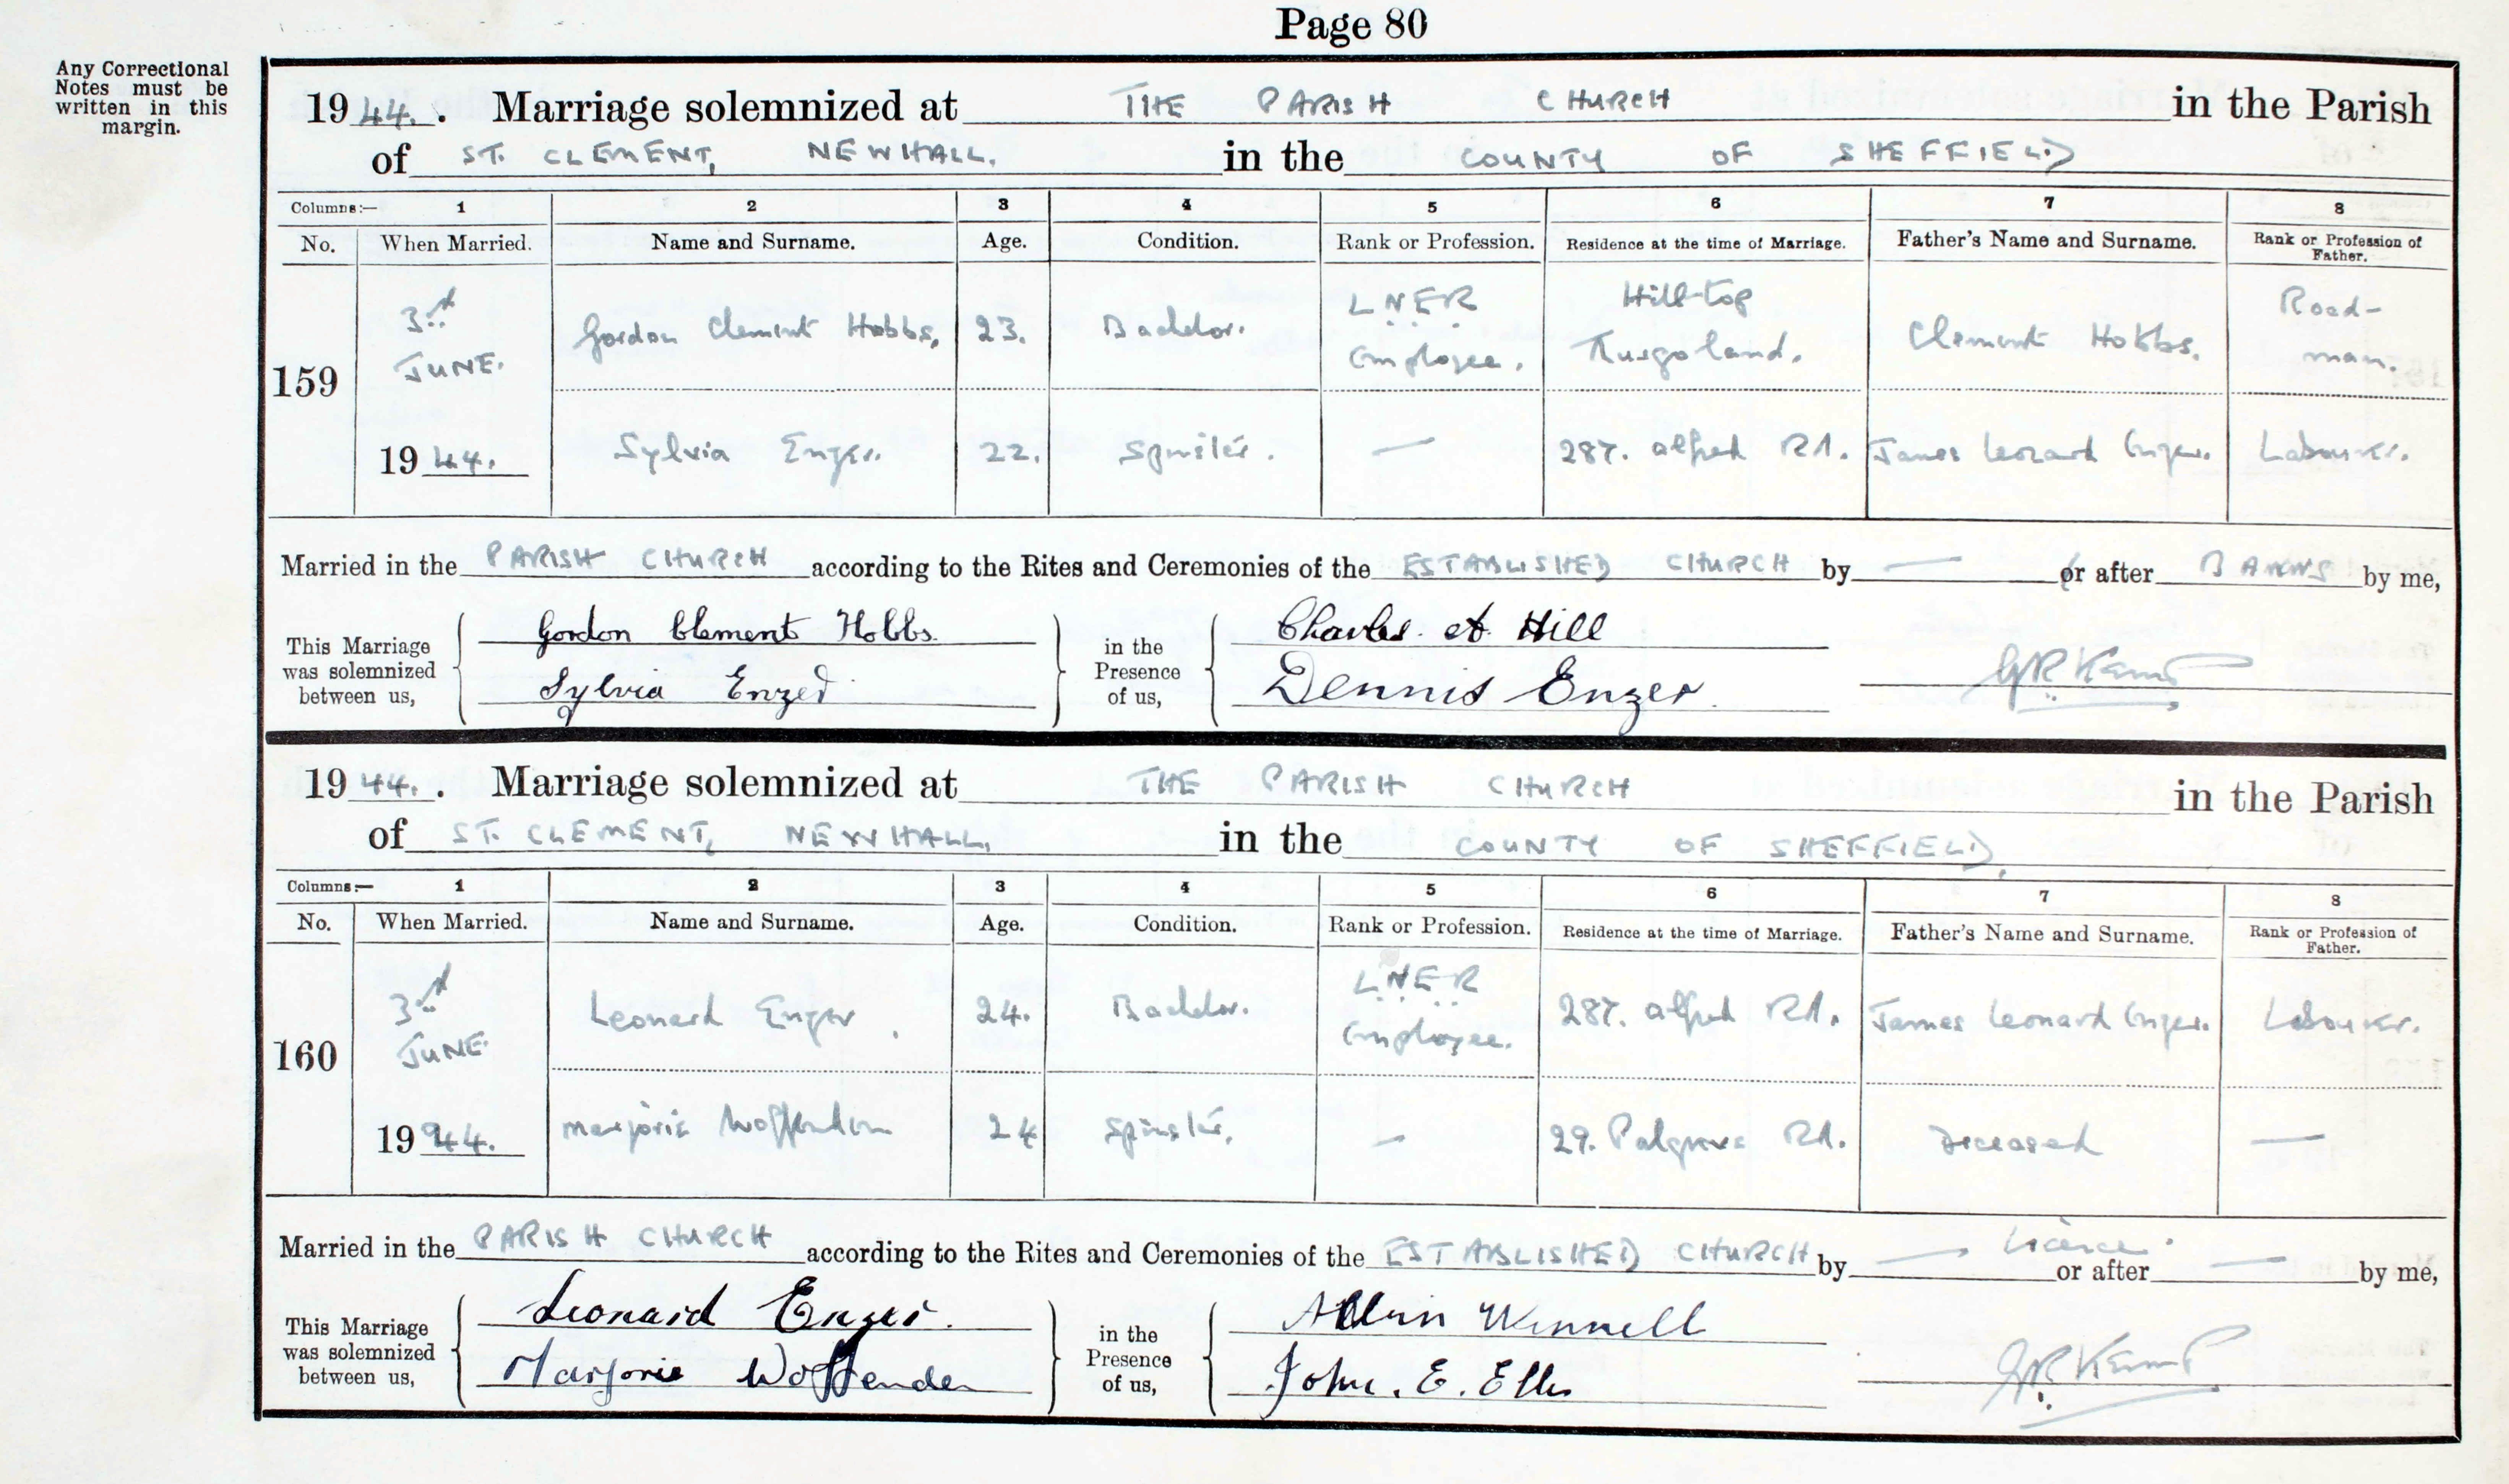 Page 80
Any Correctional
Notes must be
written in this
margin.
1944. Marriage solemnized at THE PARISH CHURCH in the Parish
of ST. CLEMENT, NEWHALL. in the COUNTY OF SHEFFIELD
Columns:— 1 2 3 4 5 6 7 8
No. When Married. Name and Surname. Age. Condition. Rank or Profession. Residence at the time of Marriage. Father's Name and Surname. Rank or Profession of Father.
159 3rd JUNE. 1944. Gordon Clement Hobbs, 23. Bachelor. LNER Employee. Hill-top Thurgoland. Clement Hobbs. Road-man.
Sylvia Enzer. 22. Spinster. — 287. Alfred Rd. James Leonard Enzer. Labourer.
Married in the PARISH CHURCH according to the Rites and Ceremonies of the ESTABLISHED CHURCH by — or after BANNS by me,
This Marriage was solemnized between us, Gordon Clement Hobbs. in the Presence of us, Charles. A. Hill
Sylvia Enzer Dennis Enzer GR Kemp
1944. Marriage solemnized at THE PARISH CHURCH in the Parish
of ST. CLEMENT, NEWHALL, in the COUNTY OF SHEFFIELD,
Columns:— 1 2 3 4 5 6 7 8
No. When Married. Name and Surname. Age. Condition. Rank or Profession. Residence at the time of Marriage. Father's Name and Surname. Rank or Profession of Father.
160 3rd JUNE 1944. Leonard Enzer. 24. Bachelor. LNER Employee. 287. Alfred Rd. James Leonard Enzer. Labourer.
Marjorie Woffenden 24 Spinster. — 29. Palgrave Rd. Deceased —
Married in the PARISH CHURCH according to the Rites and Ceremonies of the ESTABLISHED CHURCH by — Licence. or after — by me,
This Marriage was solemnized between us, Leonard Enzer. in the Presence of us, Winnell
Marjorie Woffenden John. E. Ellis GR Kemp